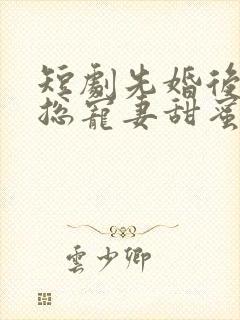 短劇先婚後
總寵妻甜蜜
雲少卿